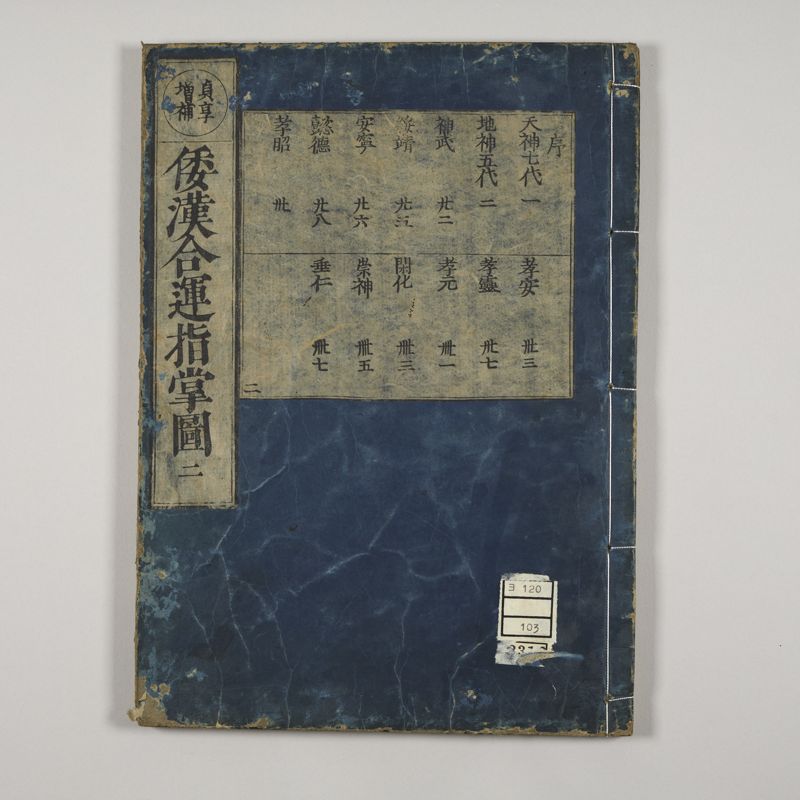 貞享
増補
倭漢合運指掌圖 二
序
天神七代 一
地神五代 二
神武 廿二
綏靖 廿五
安寧 廿六
懿德 廿八
孝昭 卅
孝安 卅三
孝靈 卅七
孝元 卌一
開化 卌三
崇神 卌五
垂仁 卌七
二
ヨ 120
103